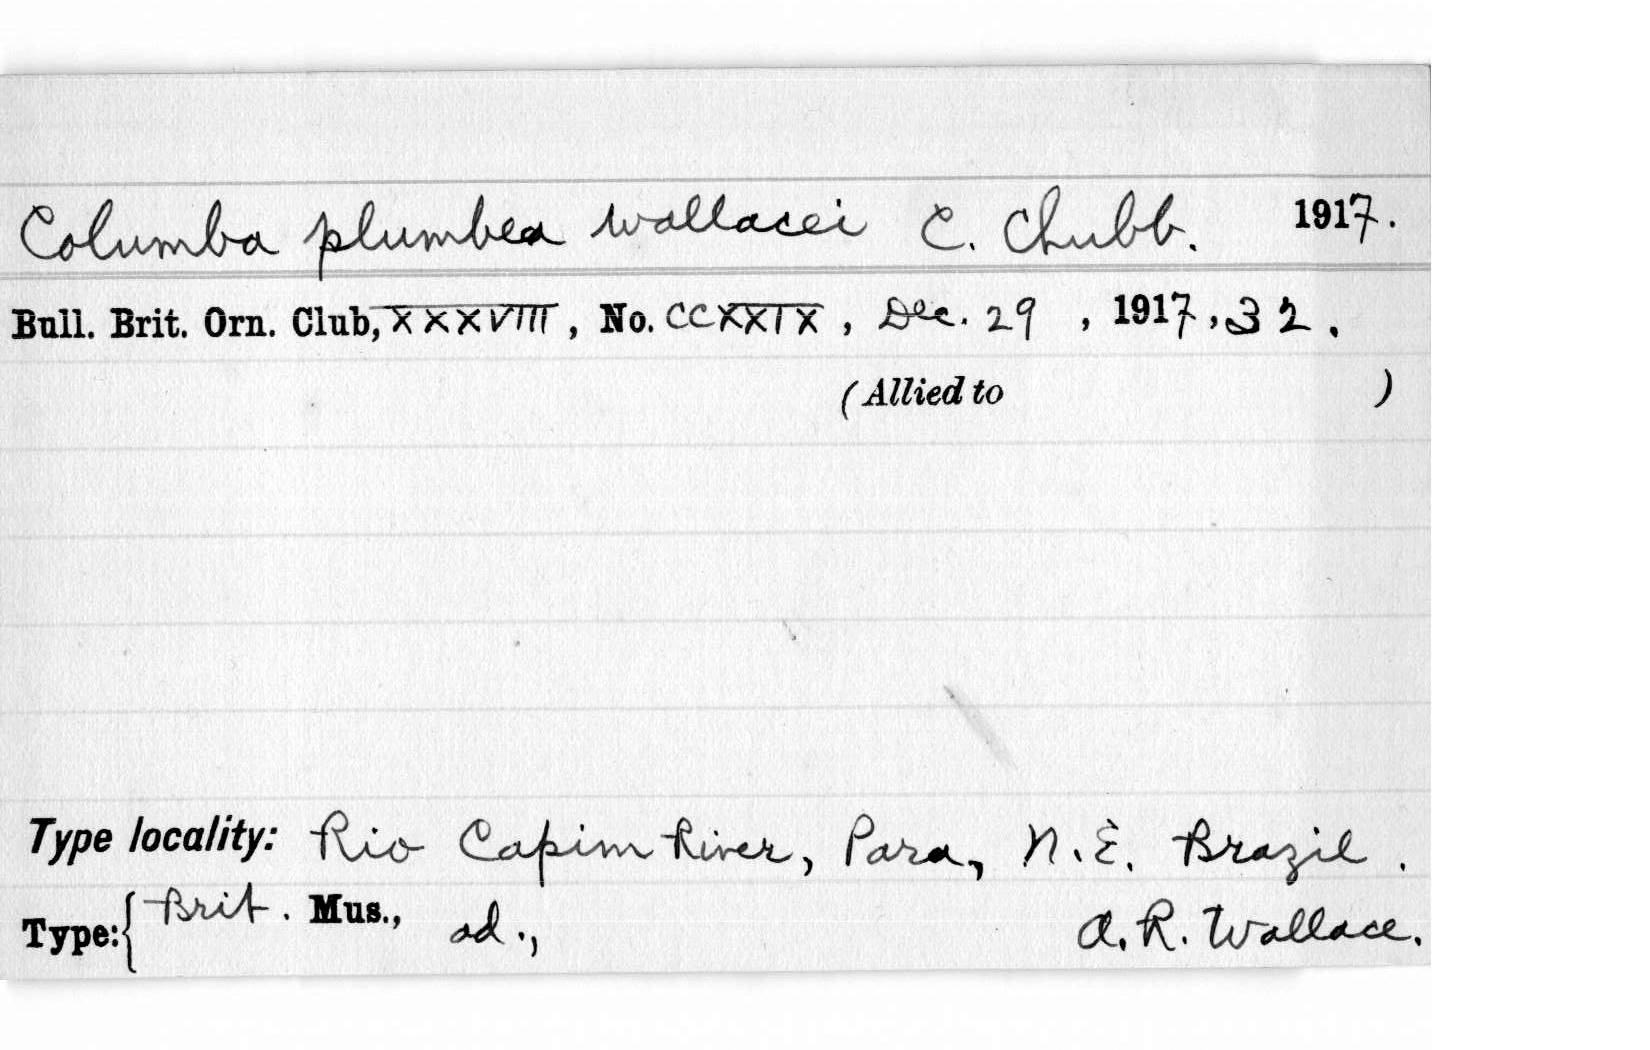 Columba plumbea wallacei C. Chubb. 1917.
Bull. Brit. Orn. Club, XXXVIII, No. CCXXIX, Dec. 29, 1917, 32.
(Allied to )
Type locality: Rio Capim River, Para, N.E. Brazil.
Type: { Brit. Mus., ad., A. R. Wallace.